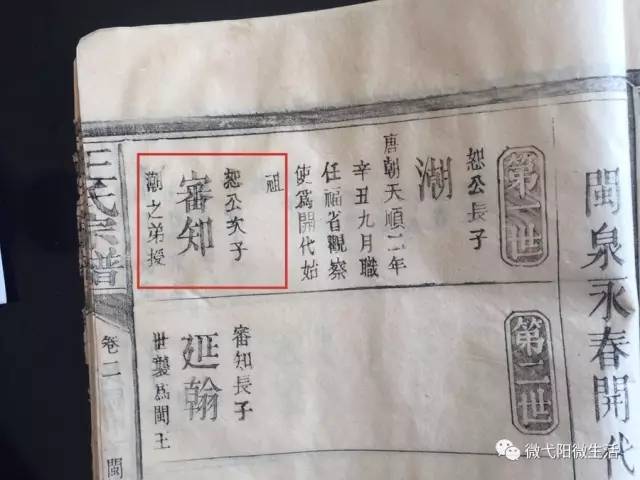 閩泉永春開代
第一世
恕公長子
潮
唐朝天順二年
辛丑九月職
任福省觀察
使爲開代始
祖
恕公次子
審知
潮之弟授
第二世
審知長子
延翰
世襲爲閩王
王氏宗譜
卷二
閩
微弋阳微生活